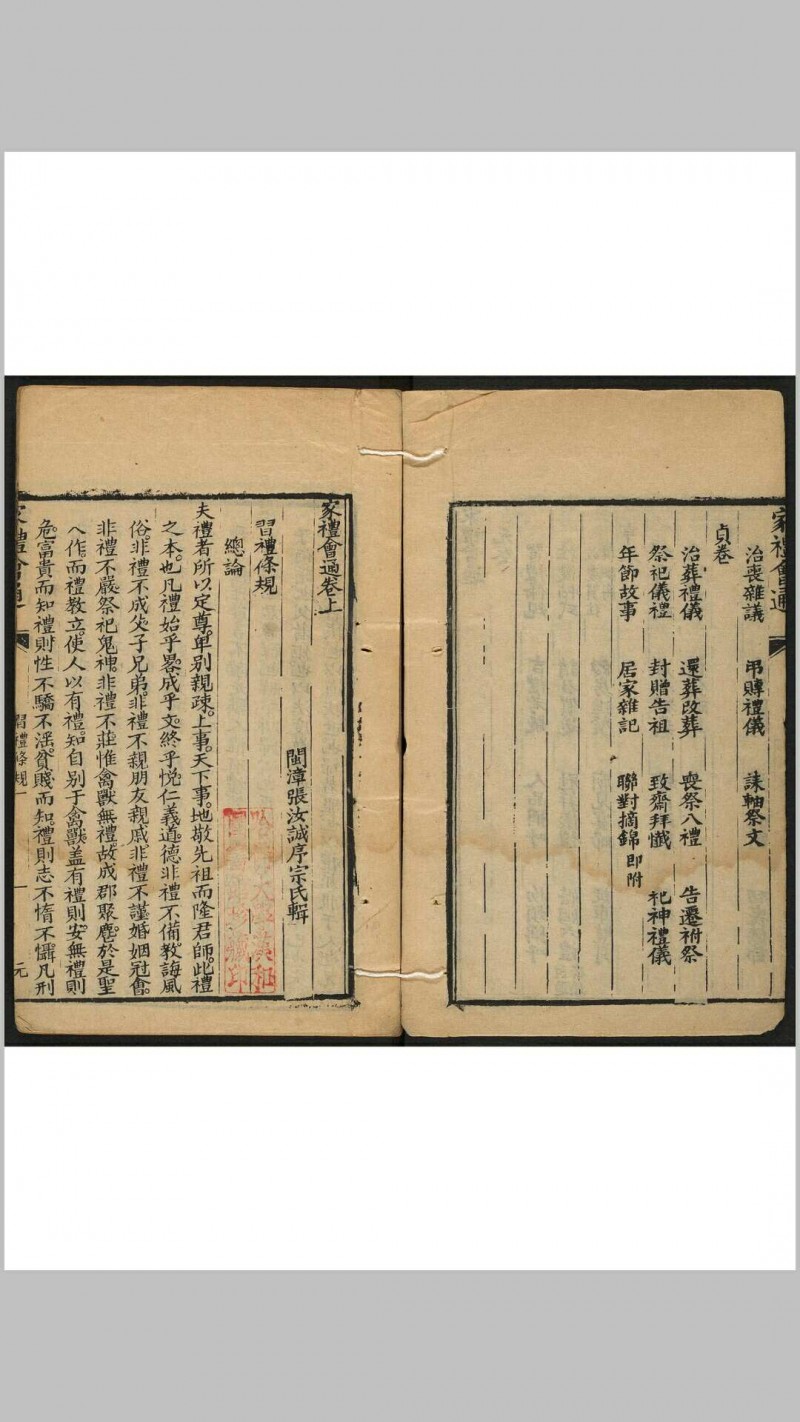 家禮會通
治喪雜議 弔賻禮儀 誄軸祭文
貞卷
治葬禮儀 還葬改葬 喪祭八禮 告遷祔祭
祭祀儀禮 封贈告祖 致齋拜懺 祀神禮儀
年節故事 居家雜記 聯對摘錦即附
家禮會通卷上
閩漳張汝誠序宗氏輯
習禮條規
總論
夫禮者所以定尊卑別親疎。上事。天下事。地敬先祖而隆君師。此禮
之本。也凡禮始乎畧成乎文終乎悅仁義道。德非禮不備。教誨風
俗。非禮不成父子兄弟。非禮不親朋友親戚非禮不謹婚姻冠會。
非禮不嚴。祭祀鬼神。非禮不莊惟禽獸無禮。故成郡聚麀。於是聖
人作。而禮教立。使人以有禮。知自別于禽獸。盖有禮則安。無禮則
危。富貴而知禮則性不驕不淫。貧賤而知禮則志不惰不懾。凡刑
家禮會通
習禮條規 一
元